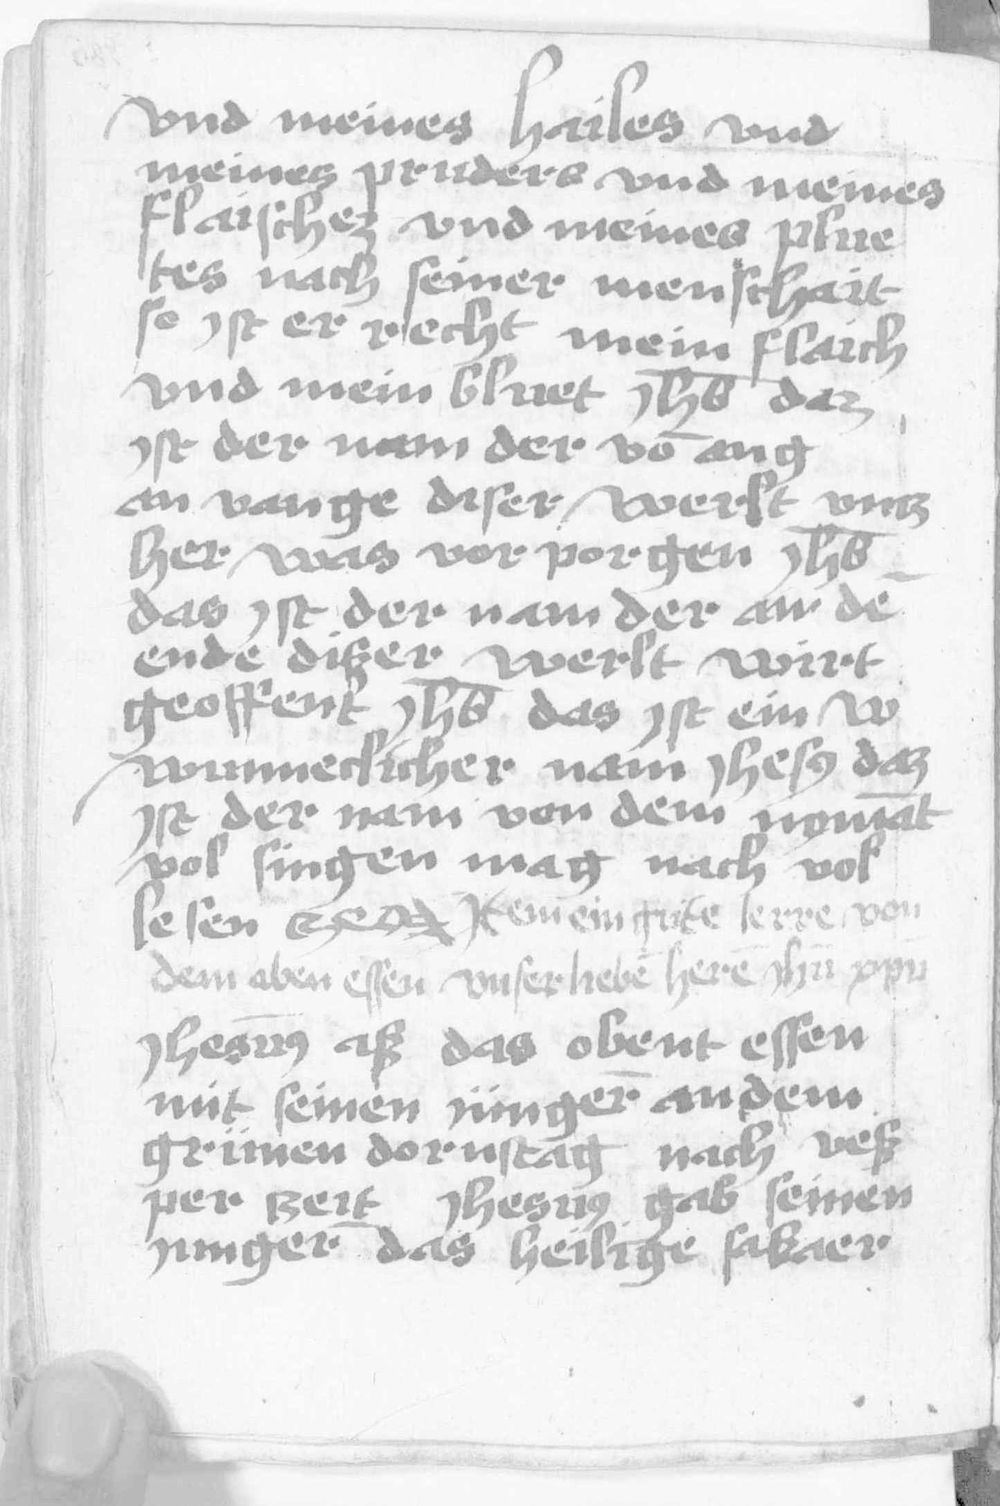 vnd meines hailes vnd
meines pruders vnd meines
flaischez vnd meines plue
tes nach seiner menschait
so jst er recht mein flaich
vnd mein bluet jhs̄ daz
jst der nam der vō ang
an vange diser werlt vnz
her was vor porgen jhs̄
das jst der nam der an dē
ende dißer werlt wirt
geoffent jhs̄ das jst ein w
wunneclicher nam jhesꝯ daz
jst der nam von dem nymāt
vol singen mag nach vol
lesen Jtem ein gute lerre von
dem aben essen vnser liebē herē jhū xpū
jhesūꝯ aß das obent essen
mit seinen jünger̄ an dem
grünen dornstag nach veß
per zeit jhesuꝯ gab seinen
junger̄ das heilige sakaer